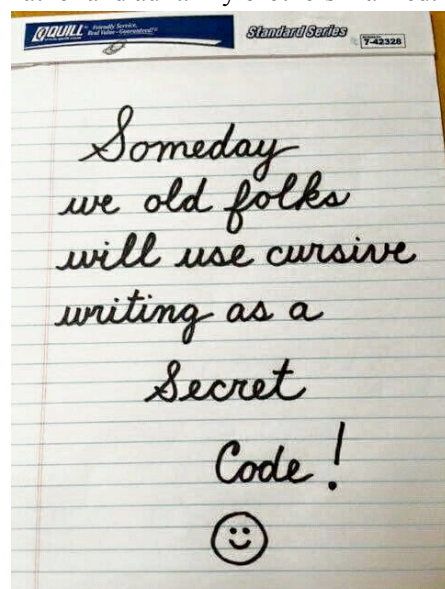 QUILL
Friendly Service,
Real Value—Guaranteed!
Standard Series
7-42328
Someday
we old folks
will use cursive
writing as a
Secret
Code!